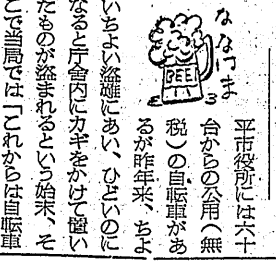 ななけま
BEE
3
平市役所には六十
台からの公用(無
税)の自転車があ
るが昨年来、ちよ
いちよい盗難にあい、ひどいのに
なると庁舎内にカギをかけて置い
たものが盗まれるという始末、そ
こで当局では「これからは自転車